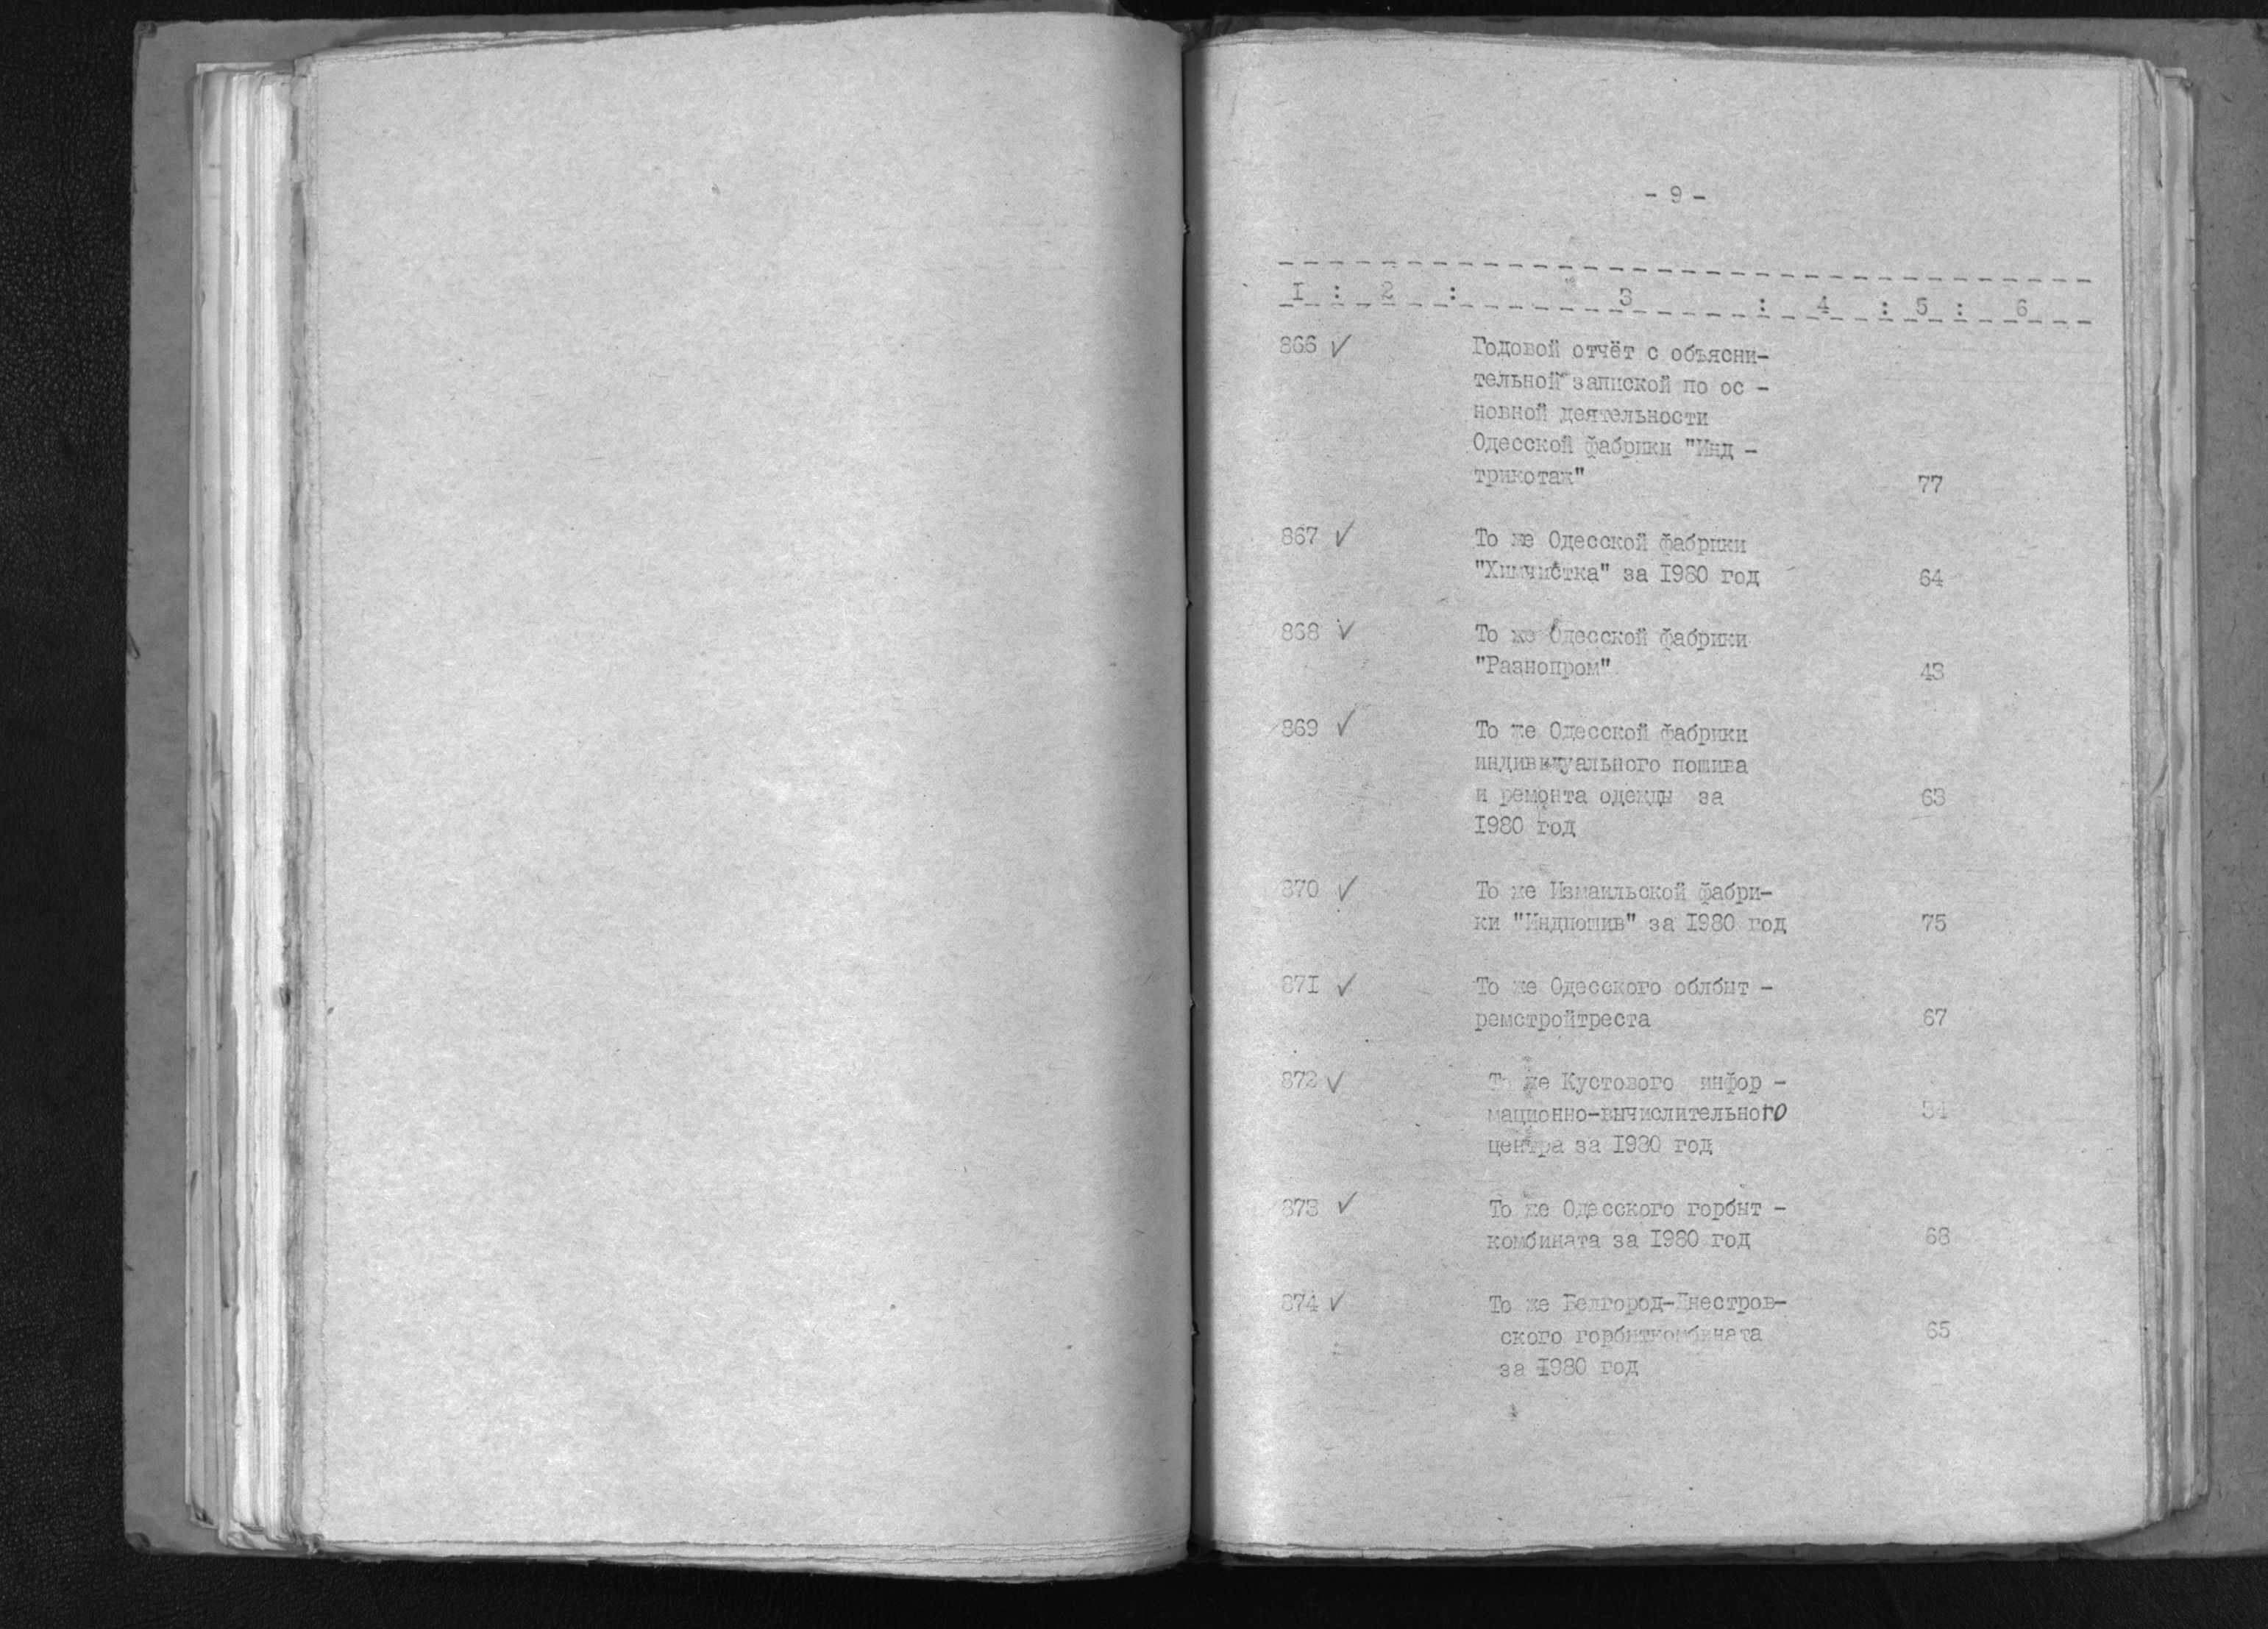 - 9 -
I : 2 : 3 : 4 : 5 : 6
866 ✓ Годовой отчёт с объясни-
тельной запиской по ос -
новной деятельности
Одесской фабрики "Инд -
трикотаж" 77
867 ✓ То же Одесской фабрики
"Химчистка" за I980 год 64
868 ✓ То же Одесской фабрики
"Разнопром" 43
869 ✓ То же Одесской фабрики
индивидуального пошива
и ремонта одежды за 63
I980 год
870 ✓ То же Измаильской фабри-
ки "Индпошив" за I980 год 75
87I ✓ То же Одесского облбыт -
ремстройтреста 67
872 ✓ То же Кустового инфор -
мационно-вычислительного
центра за I980 год
873 ✓ То же Одесского горбыт -
комбината за I980 год 68
874 ✓ То же Белгород-Днестров-
ского горбыткомбината 65
за I980 год